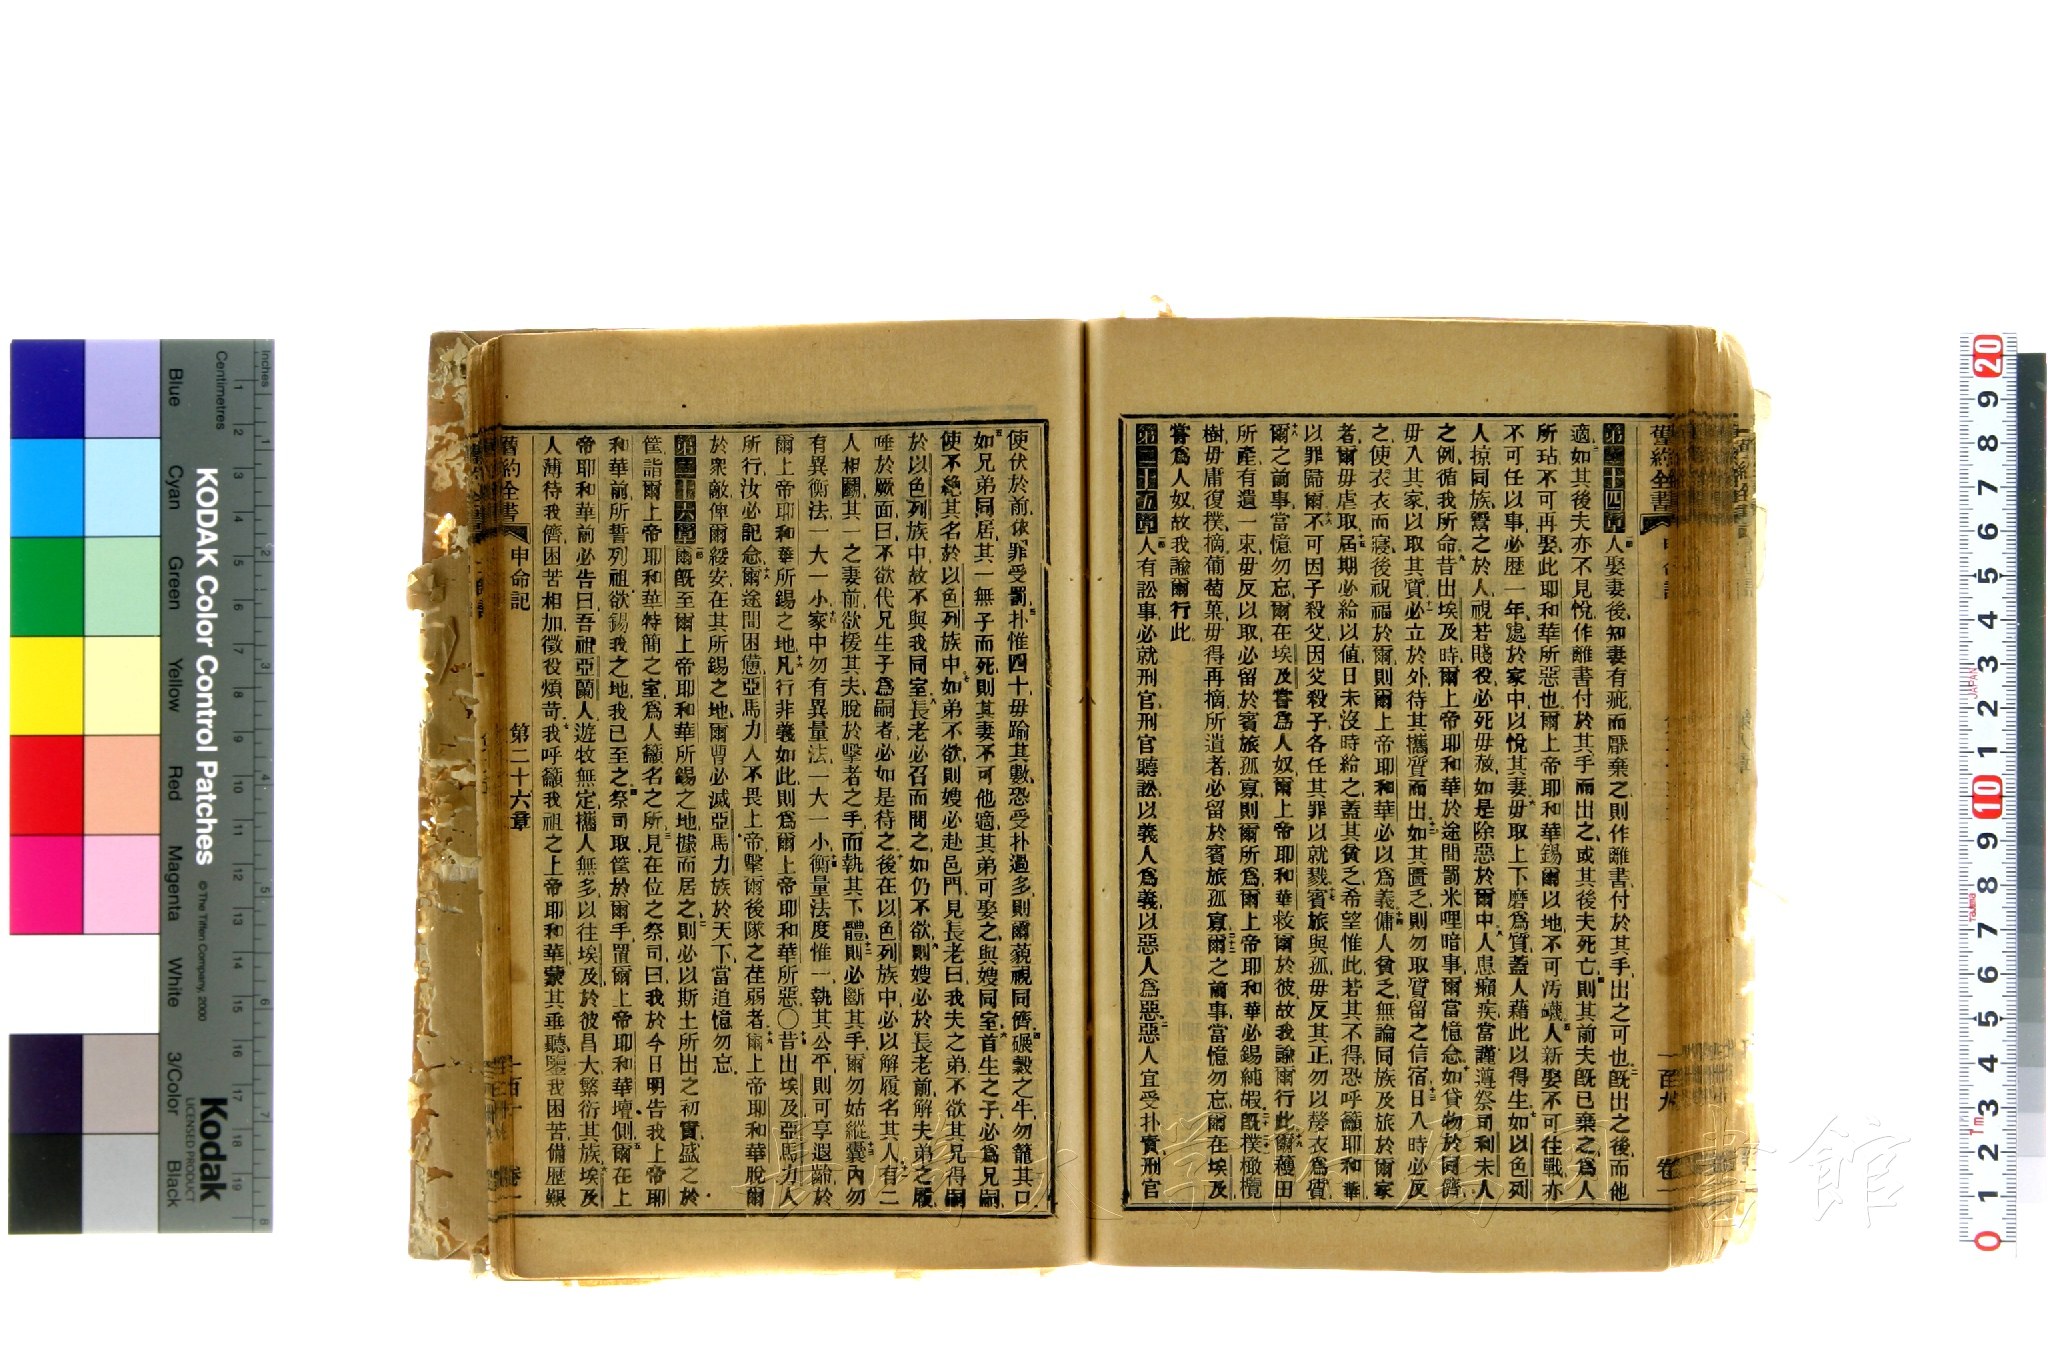 舊約全書 申命記 一百九 卷一
第二十四章 人娶妻後知妻有疵而厭棄之則作離書付於其手出之可也旣出之後而他
適如其後夫亦不見悅作離書付於其手而出之或其後夫死亡則其前夫旣已棄之爲人
所玷不可再娶此耶和華所惡也爾上帝耶和華錫爾以地不可汚衊人新娶不可往戰亦
不可任以事必歷一年處於家中以悅其妻毋取上下磨爲質蓋人藉此以得生如以色列
人掠同族鬻之於人視若賤役必死毋赦如是除惡於爾中人患癩疾當謹遵祭司利未人
之例循我所命昔出埃及時爾上帝耶和華於途間罰米哩暗事爾當憶念如貸物於同儕
毋入其家以取其質必立於外待其攜質而出如其匱乏則勿取質留之信宿日入時必反
之使衣衣而寢後祝福於爾則爾上帝耶和華必以爲義傭人貧乏無論同族及旅於爾家
者爾毋虐取屆期必給以值日未沒時給之蓋其貧乏希望惟此若其不得恐呼籲耶和華
以罪歸爾不可因子殺父因父殺子各任其罪以就戮賓旅與孤毋反其正勿以嫠衣爲質
爾之前事當憶勿忘爾在埃及嘗爲人奴爾上帝耶和華救爾於彼故我諭爾行此爾穫田
所產有遺一束毋反以取必留於賓旅孤寡則爾所爲爾上帝耶和華必錫純嘏旣樸橄欖
樹毋庸復樸摘葡萄菓毋得再摘所遺者必留於賓旅孤寡爾之前事當憶勿忘爾在埃及
嘗爲人奴故我諭爾行此
第二十五章 人有訟事必就刑官刑官聽訟以義人爲義以惡人爲惡惡人宜受扑實刑官
使伏於前依罪受罰扑惟四十毋踰其數恐受扑過多則爾藐視同儕碾穀之牛勿籠其口
如兄弟同居其一無子而死則其妻不可他適其弟可娶之與嫂同室首生之子必爲兄嗣
使不絶其名於以色列族中如弟不欲則嫂必赴邑門見長老曰我夫之弟不欲其兄得嗣
於以色列族中故不與我同室長老必召而問之如仍不欲則嫂必於長老前解夫弟之履
唾於厥面曰不欲代兄生子爲嗣者必如是待之後在以色列族中必以解履名其人有二
人相鬬其一之妻前欲援其夫脫於擊者之手而執其下體則必斷其手爾勿姑縱囊內勿
有異衡法一大一小家中勿有異量法一大一小衡量法度惟一執其公平則可享遐齡於
爾上帝耶和華所錫之地凡行非義如此則爲爾上帝耶和華所惡〇昔出埃及亞馬力人
所行汝必記念爾途間困憊亞馬力人不畏上帝擊爾後隊之荏弱者爾上帝耶和華脫爾
於衆敵俾爾綏安在其所錫之地爾曹必滅亞馬力族於天下當追憶勿忘
第二十六章 爾旣至爾上帝耶和華所錫之地據而居之則必以斯土所出之初實盛之於
筐詣爾上帝耶和華特簡之室爲人籲名之所見在位之祭司曰我於今日明告我上帝耶
和華前所誓列祖欲錫我之地我已至之祭司取筐於爾手置爾上帝耶和華壇側爾在上
帝耶和華前必告曰吾祖亞蘭人遊牧無定攜人無多以往埃及於彼昌大繁衍其族埃及
人薄待我儕困苦相加徵役煩苛我呼籲我祖之上帝耶和華蒙其垂聽鑒我困苦備歷艱
舊約全書 申命記 第二十六章 一百十 卷一
KODAK Color Control Patches
© The Tiffen Company, 2000
Kodak
LICENSED PRODUCT
Inches
Centimetres
Blue
Cyan
Green
Yellow
Red
Magenta
White
3/Color
Black